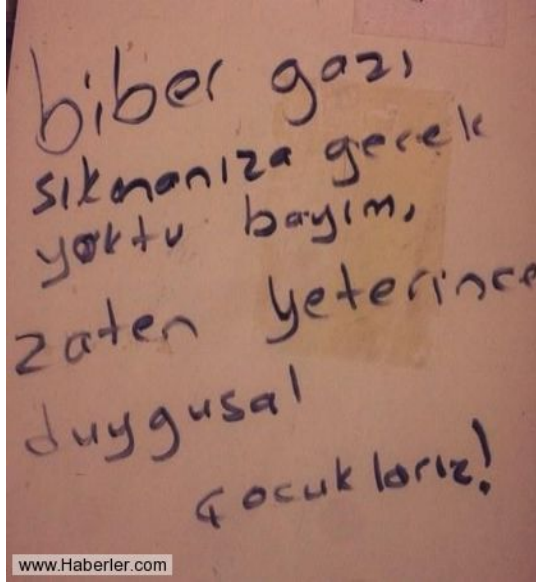 biber gazı
sıkmanıza gerek
yoktu bayım,
zaten yeterince
duygusal
çocuklarız!
www.Haberler.com